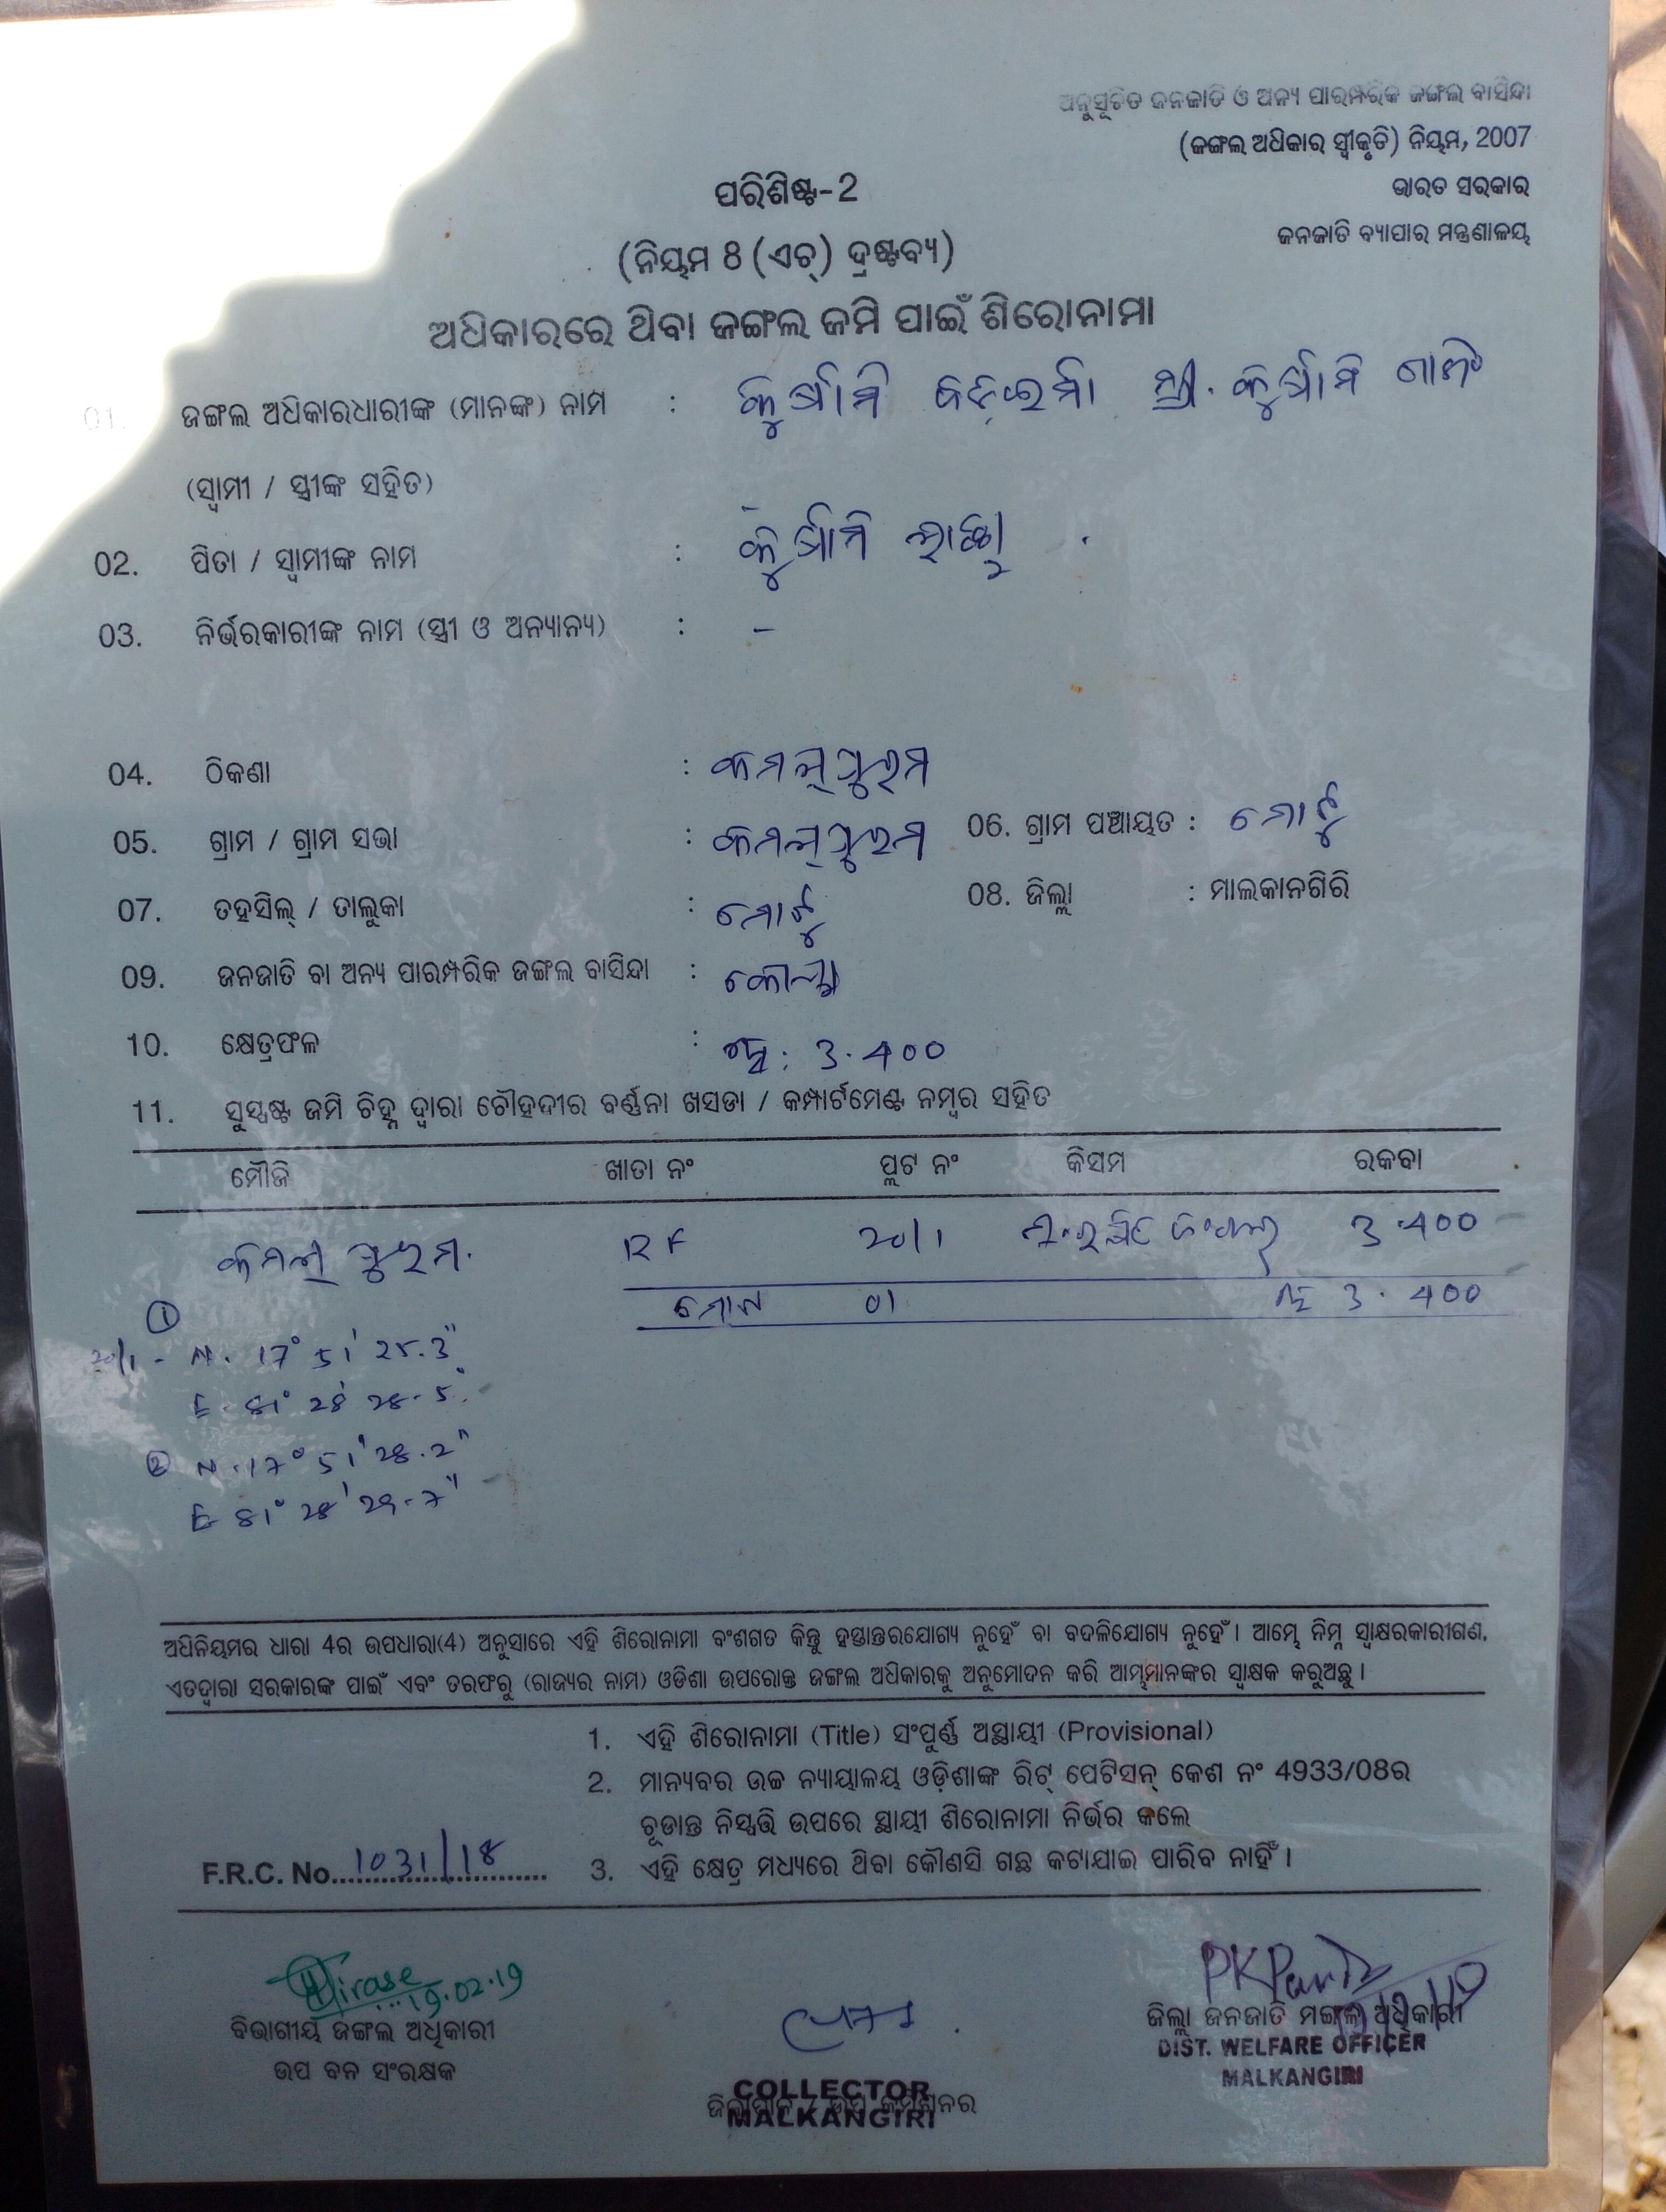 ଅନୁସୂଚିତ ଜନଜାତି ଓ ଅନ୍ୟ ପାରମ୍ପରିକ ଜଙ୍ଗଲ ବାସିନ୍ଦା
(ଜଙ୍ଗଲ ଅଧିକାର ସ୍ୱୀକୃତି) ନିୟମ, 2007
ଭାରତ ସରକାର
ଜନଜାତି ବ୍ୟାପାର ମନ୍ତ୍ରଣାଳୟ
ପରିଶିଷ୍ଟ-2
(ନିୟମ 8 (ଏଚ୍) ଦ୍ରଷ୍ଟବ୍ୟ)
ଅଧିକାରରେ ଥିବା ଜଙ୍ଗଲ ଜମି ପାଇଁ ଶିରୋନାମା
01. ଜଙ୍ଗଲ ଅଧିକାରଧାରୀଙ୍କ (ମାନଙ୍କ) ନାମ :
(ସ୍ୱାମୀ / ସ୍ତ୍ରୀଙ୍କ ସହିତ)
02. ପିତା / ସ୍ୱାମୀଙ୍କ ନାମ :
03. ନିର୍ଭରକାରୀଙ୍କ ନାମ (ସ୍ତ୍ରୀ ଓ ଅନ୍ୟାନ୍ୟ) : –
04. ଠିକଣା :
05. ଗ୍ରାମ / ଗ୍ରାମ ସଭା : 06. ଗ୍ରାମ ପଞ୍ଚାୟତ : ମୋଟୁ
07. ତହସିଲ୍ / ତାଲୁକା : ମୋଟୁ 08. ଜିଲ୍ଲା : ମାଲକାନଗିରି
09. ଜନଜାତି ବା ଅନ୍ୟ ପାରମ୍ପରିକ ଜଙ୍ଗଲ ବାସିନ୍ଦା : କୋୟା
10. କ୍ଷେତ୍ରଫଳ : 3.400
11. ସୁସ୍ପଷ୍ଟ ଜମି ଚିହ୍ନ ଦ୍ୱାରା ଚୌହଦୀର ବର୍ଣ୍ଣନା ଖସଡା / କମ୍ପାର୍ଟମେଣ୍ଟ ନମ୍ବର ସହିତ
ମୌଜି ଖାତା ନଂ ପ୍ଲଟ ନଂ କିସମ ରକବା
RF 20/1 3.400
01 3.400
①
20/1 - N. 17° 51' 25.3"
E. 81° 28' 28.5"
② N. 17° 51' 28.2"
E 81° 28' 29.7"
ଅଧିନିୟମର ଧାରା 4ର ଉପଧାରା(4) ଅନୁସାରେ ଏହି ଶିରୋନାମା ବଂଶଗତ କିନ୍ତୁ ହସ୍ତାନ୍ତରଯୋଗ୍ୟ ନୁହେଁ ବା ବଦଳିଯୋଗ୍ୟ ନୁହେଁ। ଆମ୍ଭେ ନିମ୍ନ ସ୍ୱାକ୍ଷରକାରୀଗଣ,
ଏତଦ୍ୱାରା ସରକାରଙ୍କ ପାଇଁ ଏବଂ ତରଫରୁ (ରାଜ୍ୟର ନାମ) ଓଡିଶା ଉପରୋକ୍ତ ଜଙ୍ଗଲ ଅଧିକାରକୁ ଅନୁମୋଦନ କରି ଆମ୍ଭମାନଙ୍କର ସ୍ୱାକ୍ଷକ କରୁଅଛୁ।
1. ଏହି ଶିରୋନାମା (Title) ସଂପୂର୍ଣ୍ଣ ଅସ୍ଥାୟୀ (Provisional)
2. ମାନ୍ୟବର ଉଚ୍ଚ ନ୍ୟାୟାଳୟ ଓଡ଼ିଶାଙ୍କ ରିଟ୍ ପେଟିସନ୍ କେଶ ନଂ 4933/08ର
ଚୂଡାନ୍ତ ନିସ୍ପତ୍ତି ଉପରେ ସ୍ଥାୟୀ ଶିରୋନାମା ନିର୍ଭର କଲେ
F.R.C. No. 1031/18
3. ଏହି କ୍ଷେତ୍ର ମଧ୍ୟରେ ଥିବା କୌଣସି ଗଛ କଟାଯାଇ ପାରିବ ନାହିଁ।
19.02.19
ବିଭାଗୀୟ ଜଙ୍ଗଲ ଅଧିକାରୀ
ଉପ ବନ ସଂରକ୍ଷକ
COLLECTOR
MALKANGIRI
ଜିଲ୍ଲା ଜନଜାତି ମଙ୍ଗଳ ଅଧିକାରୀ
DIST. WELFARE OFFICER
MALKANGIRI